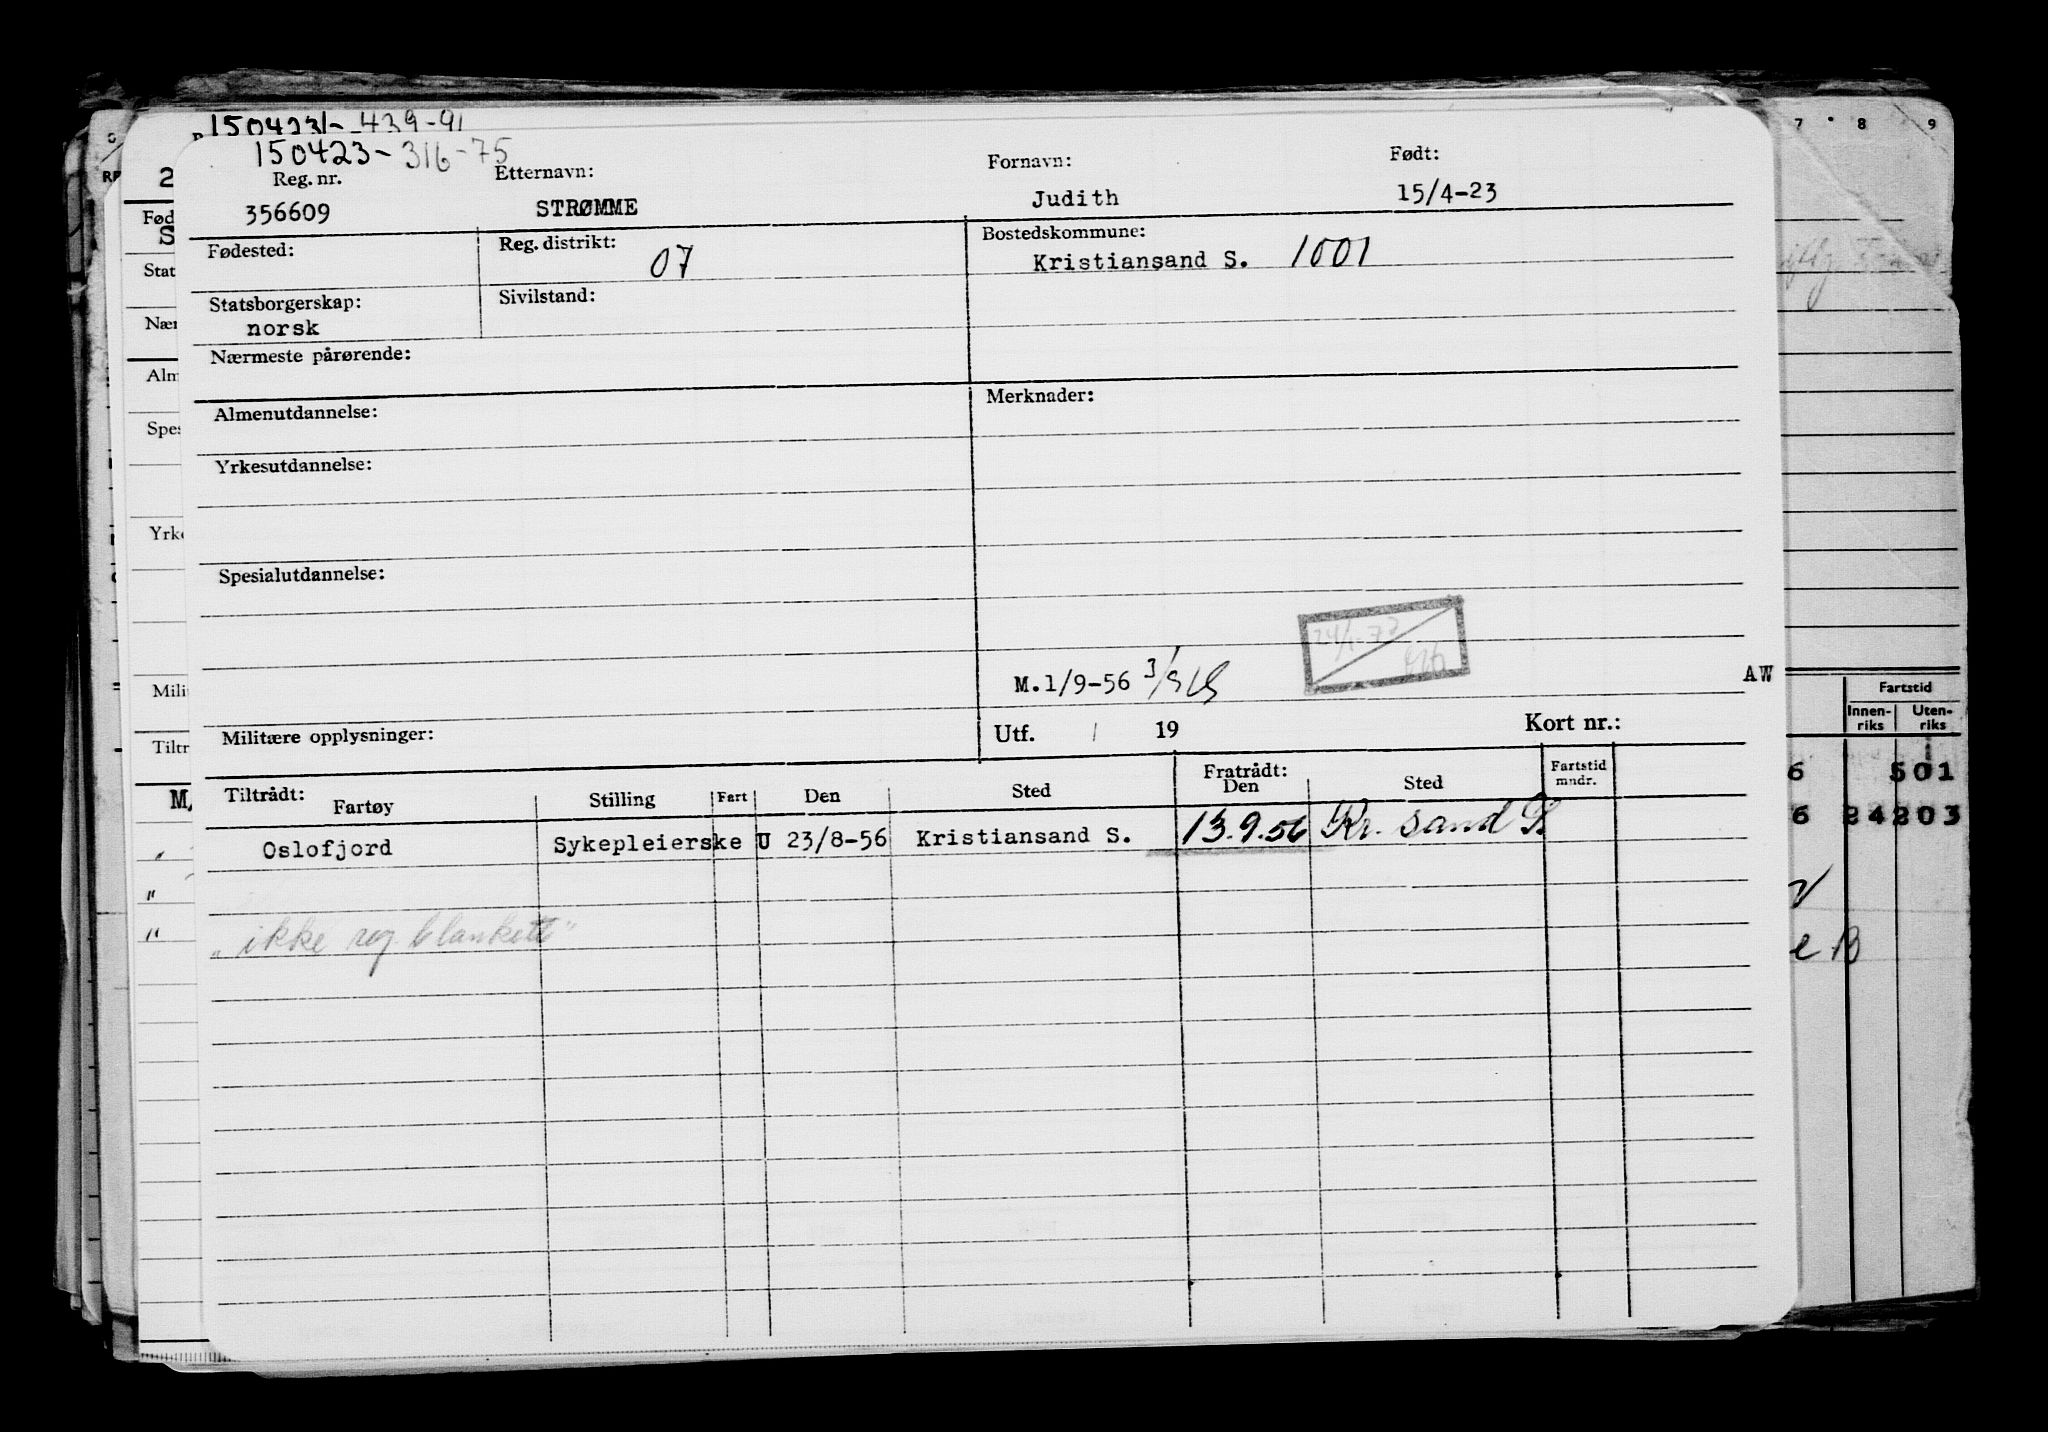 150423 - 439-91
150423 - 316-75
Reg. nr. Etternavn: Fornavn: Født:
356609 STRØMME Judith 15/4-23
Fødested: Reg. distrikt: 07 Bostedskommune:
Kristiansand S. 1001
Statsborgerskap: Sivilstand:
norsk
Nærmeste pårørende:
Almenutdannelse: Merknader:
Yrkesutdannelse:
Spesialutdannelse:
M.1/9-56 3/9 AW
Militære opplysninger: Utf. / 19 Kort nr.:
Tiltrådt: Fratrådt:
Fartøy Stilling Fart Den Sted Den Sted Fartstid mndr.
Oslofjord Sykepleierske U 23/8-56 Kristiansand S. 13.9.56 Kr. sand S
"ikke reg. blankett"
7 8 9
Fartstid
Innen-riks Uten-riks
6 501
6 24203
e B
RE
2
Fød
S
Stat
Nær
Alm
Spes
Yrke
Mili
Tiltr
MA